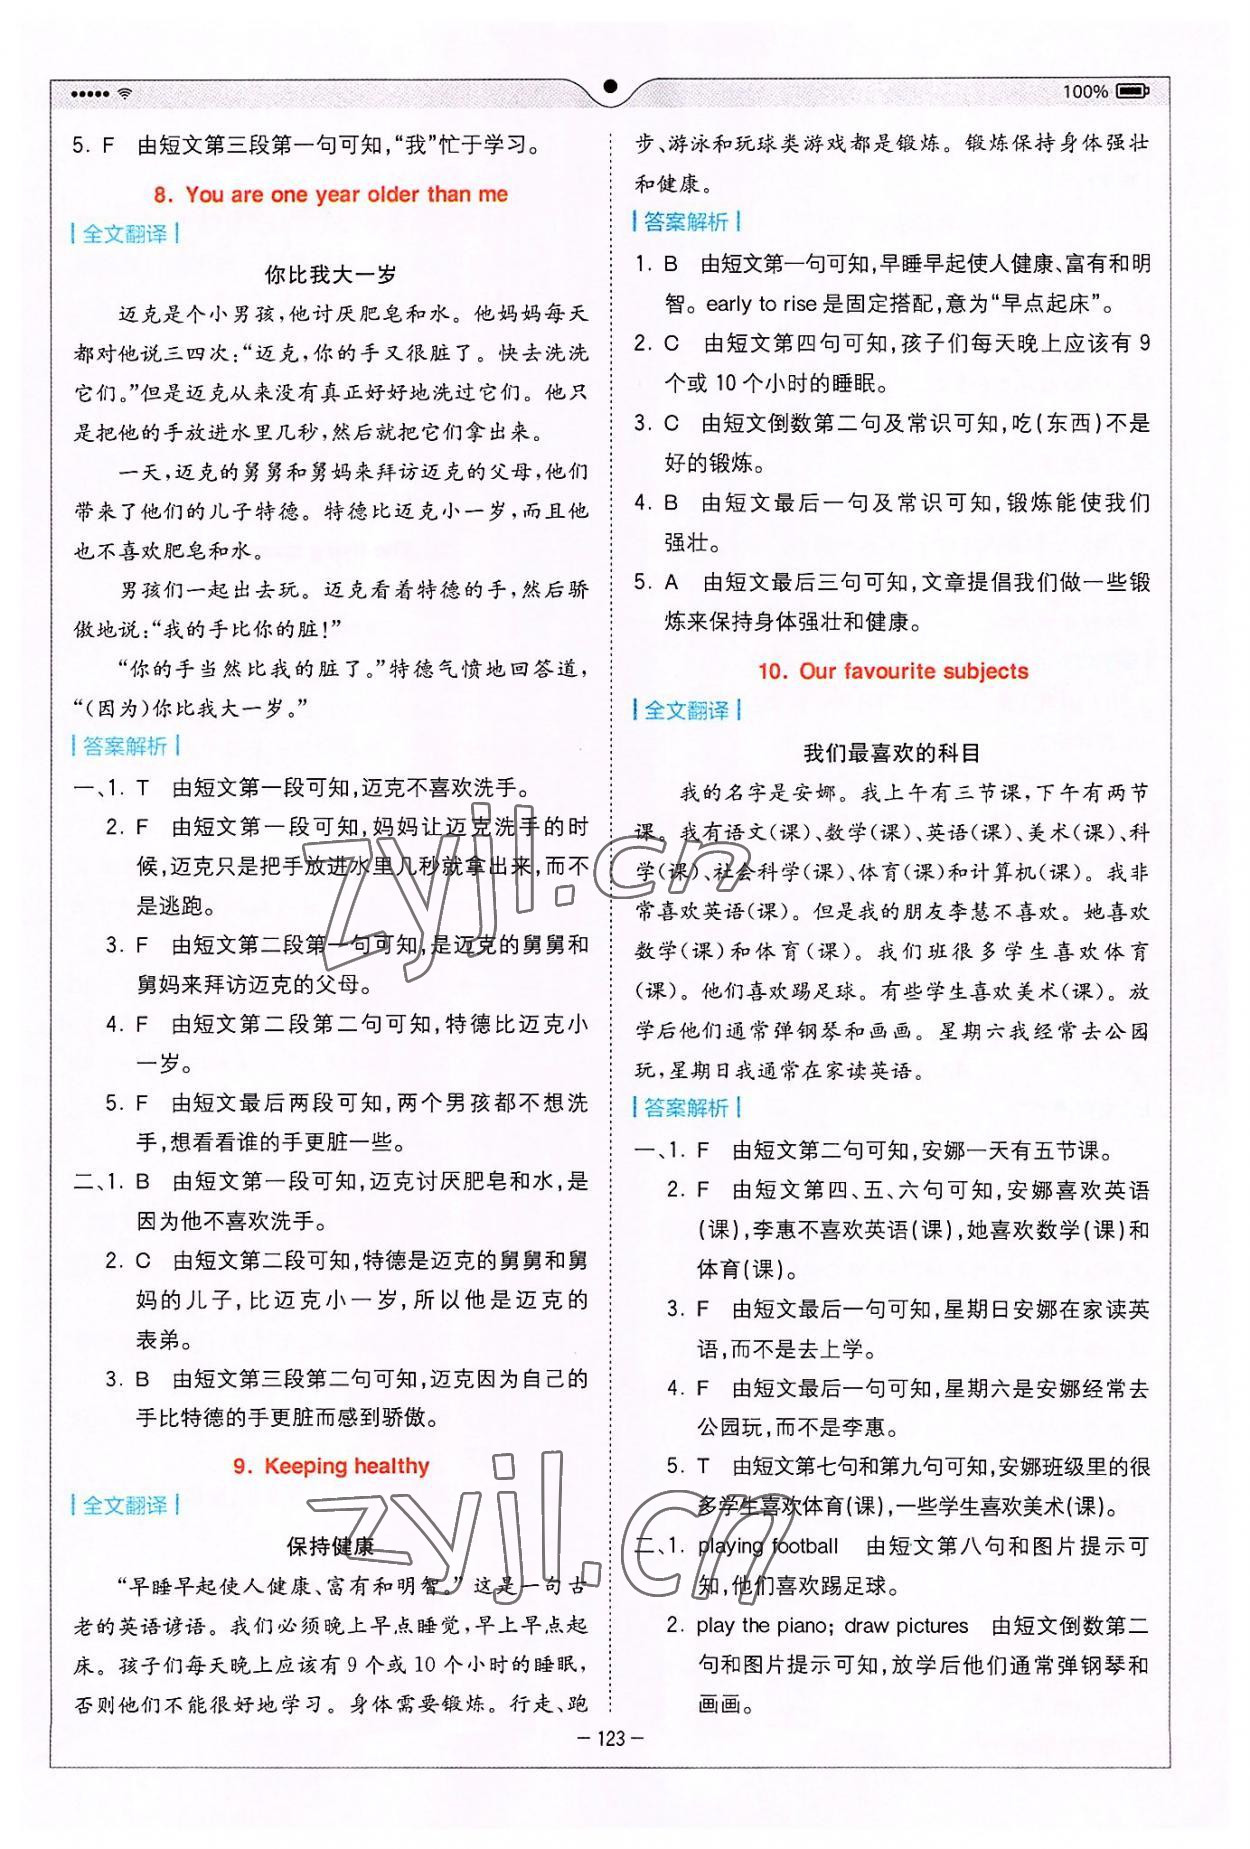 100%
5. F　由短文第三段第一句可知,“我”忙于学习。
8. You are one year older than me
全文翻译
你比我大一岁
迈克是个小男孩,他讨厌肥皂和水。他妈妈每天
都对他说三四次:“迈克,你的手又很脏了。快去洗洗
它们。”但是迈克从来没有真正好好地洗过它们。他只
是把他的手放进水里几秒,然后就把它们拿出来。
一天,迈克的舅舅和舅妈来拜访迈克的父母,他们
带来了他们的儿子特德。特德比迈克小一岁,而且他
也不喜欢肥皂和水。
男孩们一起出去玩。迈克看着特德的手,然后骄
傲地说:“我的手比你的脏!”
“你的手当然比我的脏了。”特德气愤地回答道,
“(因为)你比我大一岁。”
答案解析
一、1. T　由短文第一段可知,迈克不喜欢洗手。
2. F　由短文第一段可知,妈妈让迈克洗手的时
候,迈克只是把手放进水里几秒就拿出来,而不
是逃跑。
3. F　由短文第二段第一句可知,是迈克的舅舅和
舅妈来拜访迈克的父母。
4. F　由短文第二段第二句可知,特德比迈克小
一岁。
5. F　由短文最后两段可知,两个男孩都不想洗
手,想看看谁的手更脏一些。
二、1. B　由短文第一段可知,迈克讨厌肥皂和水,是
因为他不喜欢洗手。
2. C　由短文第二段可知,特德是迈克的舅舅和舅
妈的儿子,比迈克小一岁,所以他是迈克的
表弟。
3. B　由短文第三段第二句可知,迈克因为自己的
手比特德的手更脏而感到骄傲。
9. Keeping healthy
全文翻译
保持健康
“早睡早起使人健康、富有和明智。”这是一句古
老的英语谚语。我们必须晚上早点睡觉,早上早点起
床。孩子们每天晚上应该有 9 个或 10 个小时的睡眠,
否则他们不能很好地学习。身体需要锻炼。行走、跑
步、游泳和玩球类游戏都是锻炼。锻炼保持身体强壮
和健康。
答案解析
1. B　由短文第一句可知,早睡早起使人健康、富有和明
智。early to rise 是固定搭配,意为“早点起床”。
2. C　由短文第四句可知,孩子们每天晚上应该有 9
个或 10 个小时的睡眠。
3. C　由短文倒数第二句及常识可知,吃(东西)不是
好的锻炼。
4. B　由短文最后一句及常识可知,锻炼能使我们
强壮。
5. A　由短文最后三句可知,文章提倡我们做一些锻
炼来保持身体强壮和健康。
10. Our favourite subjects
全文翻译
我们最喜欢的科目
我的名字是安娜。我上午有三节课,下午有两节
课。我有语文(课)、数学(课)、英语(课)、美术(课)、科
学(课)、社会科学(课)、体育(课)和计算机(课)。我非
常喜欢英语(课)。但是我的朋友李慧不喜欢。她喜欢
数学(课)和体育(课)。我们班很多学生喜欢体育
(课)。他们喜欢踢足球。有些学生喜欢美术(课)。放
学后他们通常弹钢琴和画画。星期六我经常去公园
玩,星期日我通常在家读英语。
答案解析
一、1. F　由短文第二句可知,安娜一天有五节课。
2. F　由短文第四、五、六句可知,安娜喜欢英语
(课),李惠不喜欢英语(课),她喜欢数学(课)和
体育(课)。
3. F　由短文最后一句可知,星期日安娜在家读英
语,而不是去上学。
4. F　由短文最后一句可知,星期六是安娜经常去
公园玩,而不是李惠。
5. T　由短文第七句和第九句可知,安娜班级里的很
多学生喜欢体育(课),一些学生喜欢美术(课)。
二、1. playing football　由短文第八句和图片提示可
知,他们喜欢踢足球。
2. play the piano; draw pictures　由短文倒数第二
句和图片提示可知,放学后他们通常弹钢琴和
画画。
zyjl.cn
zyjl.cn
– 123 –